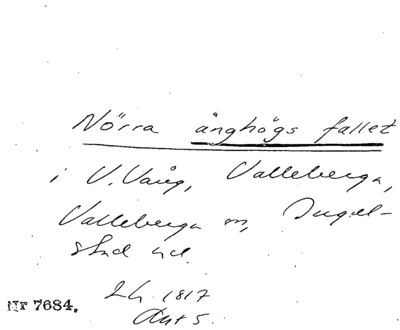 Nörra änghögs fallet
i V. Vång, Valleberga,
Valleberga sn, Ingel-
stad hd.
Lh. 1817
Akt 5.
Nr 7684.